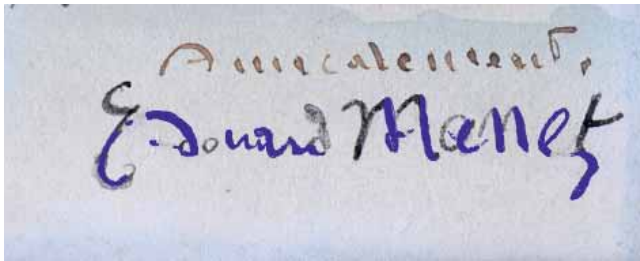 Amicalement,
Edouard Mallet